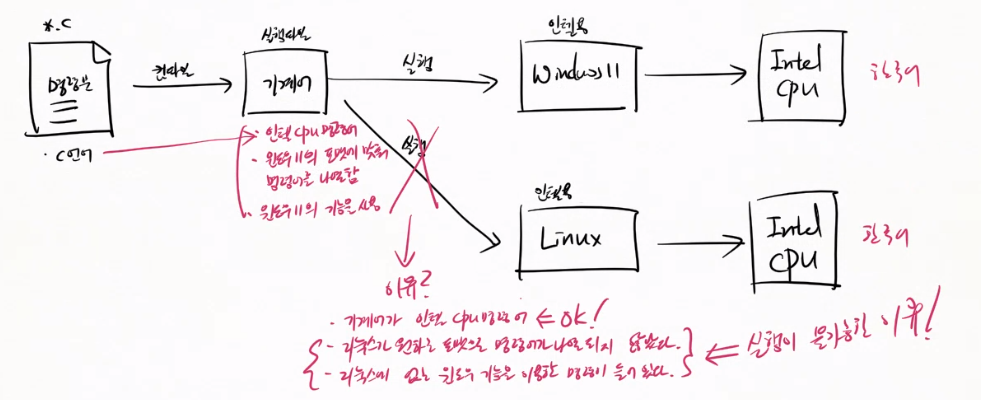 *.C
명령문
· C언어
컴파일
실행파일
기계어
실행
인텔용
Windows 11
Intel
CPU
한국어
· 인텔 CPU 명령어
· 윈도우11의 포맷에 맞춰
명령어를 나열함
· 윈도우11의 기능을 사용
실행
인텔용
Linux
Intel
CPU
한국어
이유?
- 기계어가 인텔 CPU 명령어 ⇐ OK!
- 리눅스가 원하는 포맷으로 명령어가 나열되지 않았다.
- 리눅스에 없는 윈도우 기능을 이용한 명령이 들어 있다.
⇐ 실행이 불가능한 이유!